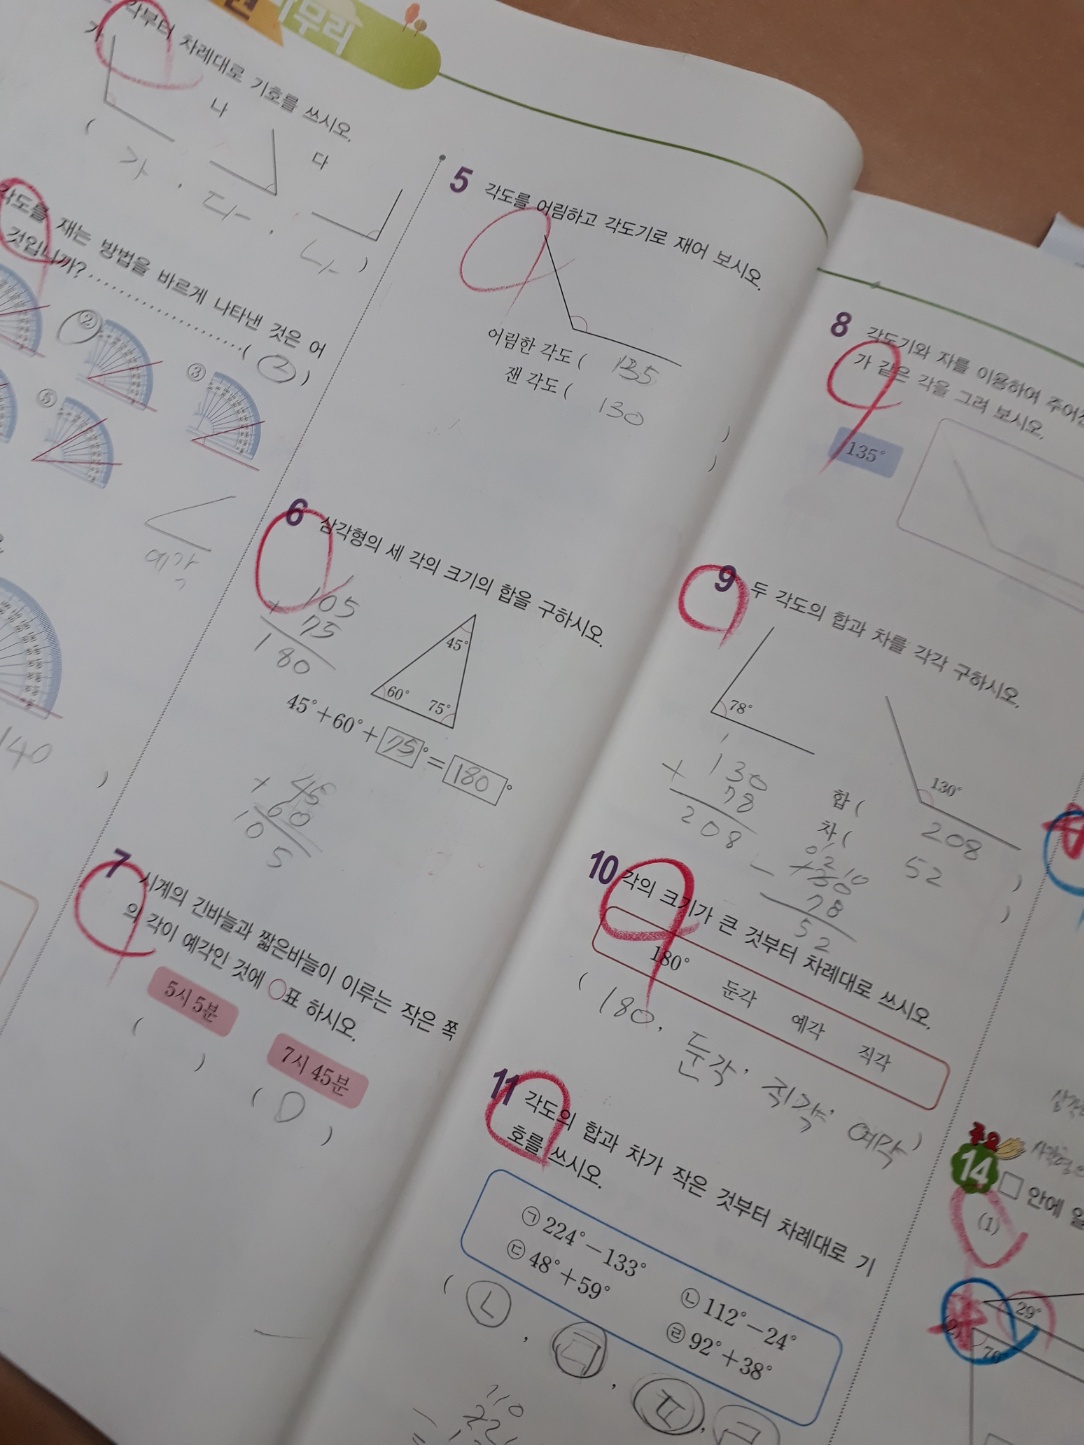 무리
각부터 차례대로 기호를 쓰시오.
가
나
다
( 가 , 다 , 나 )
각도를 재는 방법을 바르게 나타낸 것은 어
것입니까? ( ② )
②
③
⑤
예각
140 )
5 각도를 어림하고 각도기로 재어 보시오.
어림한 각도 ( 135 )
잰 각도 ( 130 )
6 삼각형의 세 각의 크기의 합을 구하시오.
105
+ 75
180
45°
60° 75°
45°+60°+75°=180°
45
+ 60
105
7 시계의 긴바늘과 짧은바늘이 이루는 작은 쪽
의 각이 예각인 것에 ○표 하시오.
5시 5분
7시 45분
( )
( O )
8 각도기와 자를 이용하여
가 같은 각을 그려 보시오.
135°
9 두 각도의 합과 차를 각각 구하시오.
78°
130°
130
+ 78
208
합 ( 208 )
차 ( 52 )
- 78
52
10 각의 크기가 큰 것부터 차례대로 쓰시오.
180° 둔각 예각 직각
( 180, 둔각, 직각, 예각 )
11 각도의 합과 차가 작은 것부터 차례대로 기
호를 쓰시오.
㉠ 224°-133° ㉡ 112°-24°
㉢ 48°+59° ㉣ 92°+38°
( ㄴ ,
중요
14 □ 안에 알
(1)
29°